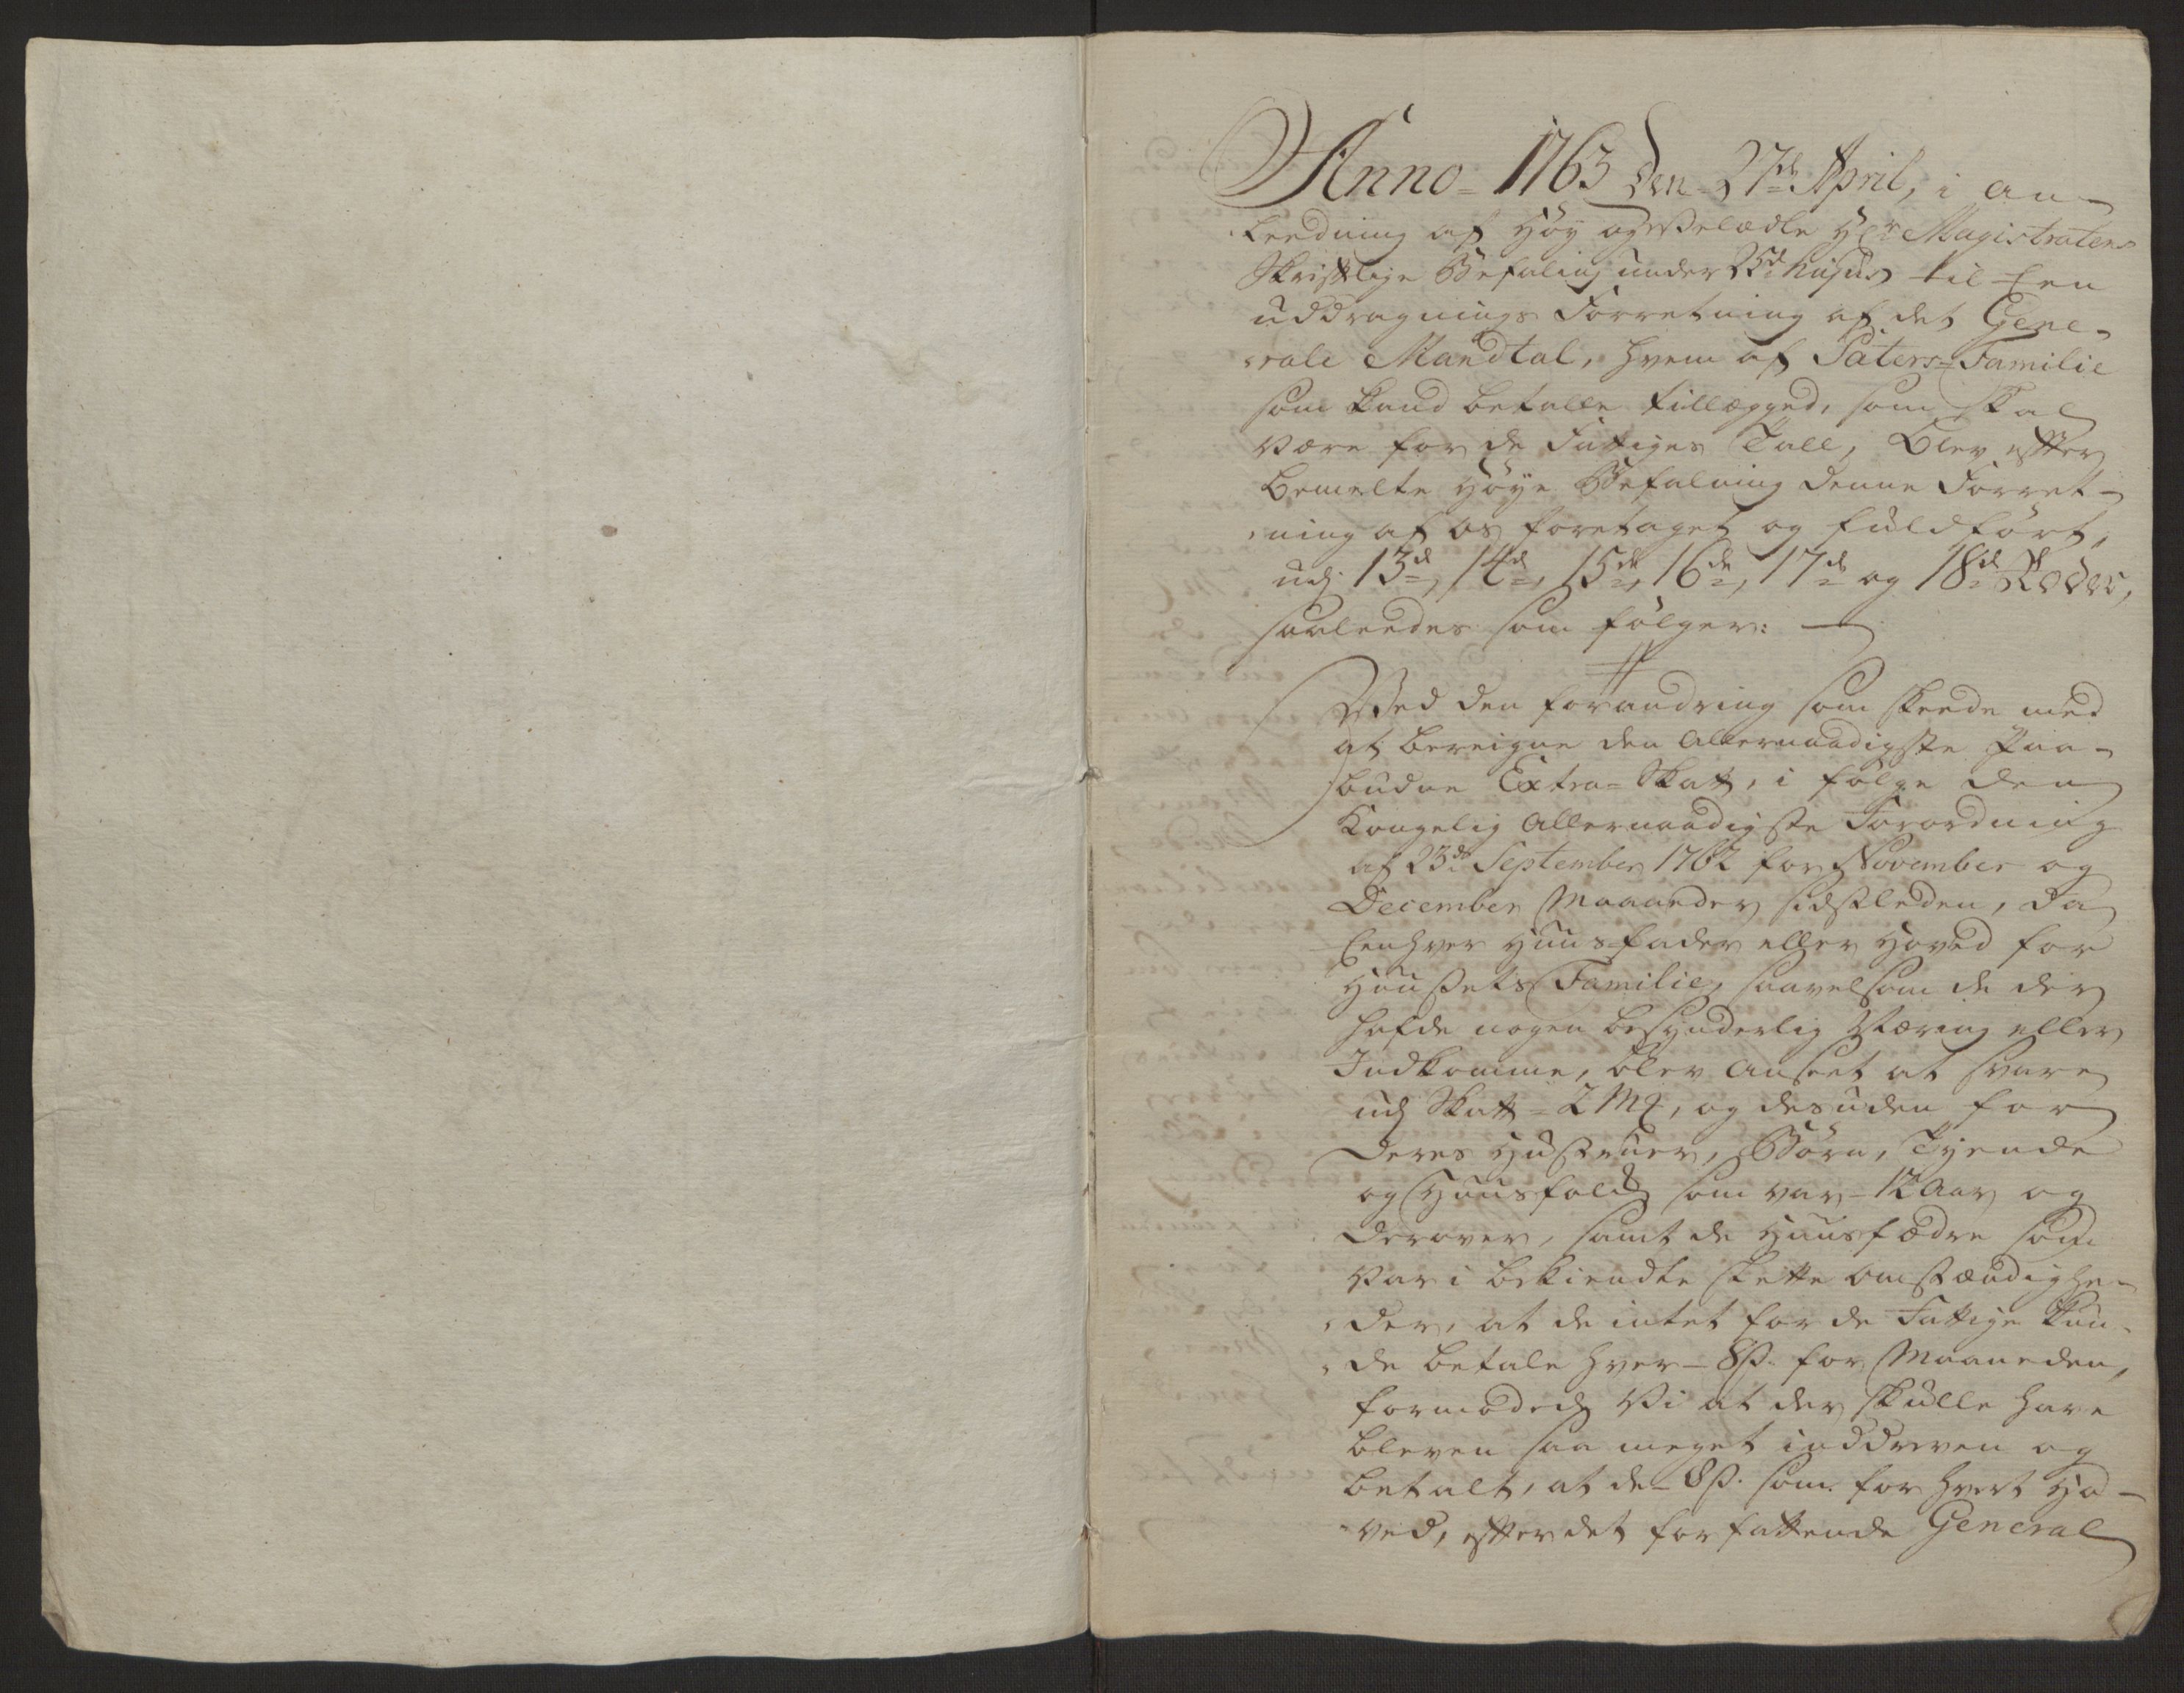 Anno 1763 den 27de April, i an-
leedning af Høy og Velædle Hr Magistratens
Skriftlige Befaling under 25de hujus til Een
uddragnings Forretning af det Gene-
rale Mandtal, hvem af Paters-Familie
som kand betalle tillægged, som skal
være for de Fattiges Tall, blev efter
bemelte høye Befalning denne Forret-
ning af os foretaget og fuldført,
udj 13de, 14de, 15de, 16de, 17de og 18de Roder,
saaleedes som følger:
Ved den forandring som skeede med
at bereigne den Allernaadigste Paa-
budne Extra-Skatt, i følge den
Kongelig Allernaadigste Forordning
af 23de September 1762 for November og
December Maaneder sidstleden, da
Eenhver Huusfader eller Hoved for
Huusets Familie, saavelsom de der
hafde nogen besynderlig Næring eller
Indkomme, blev anseet at svare
udj Skatt = 2 Mk, og desuden for
deres Hustruer, Børn, Tyende
og Huusfolk som var 12 Aar og
derover, samt de Huusfædre som
var i bekiendte slette omstændighe-
der, at de intet for de Fattige kun-
de betale hver 8 s. for Maaneden,
formodede Vi at der skulle have
bleven saa meget inddreven og
betalt, at de 8 s. som for hvert Ho-
ved, efter det forfattende General